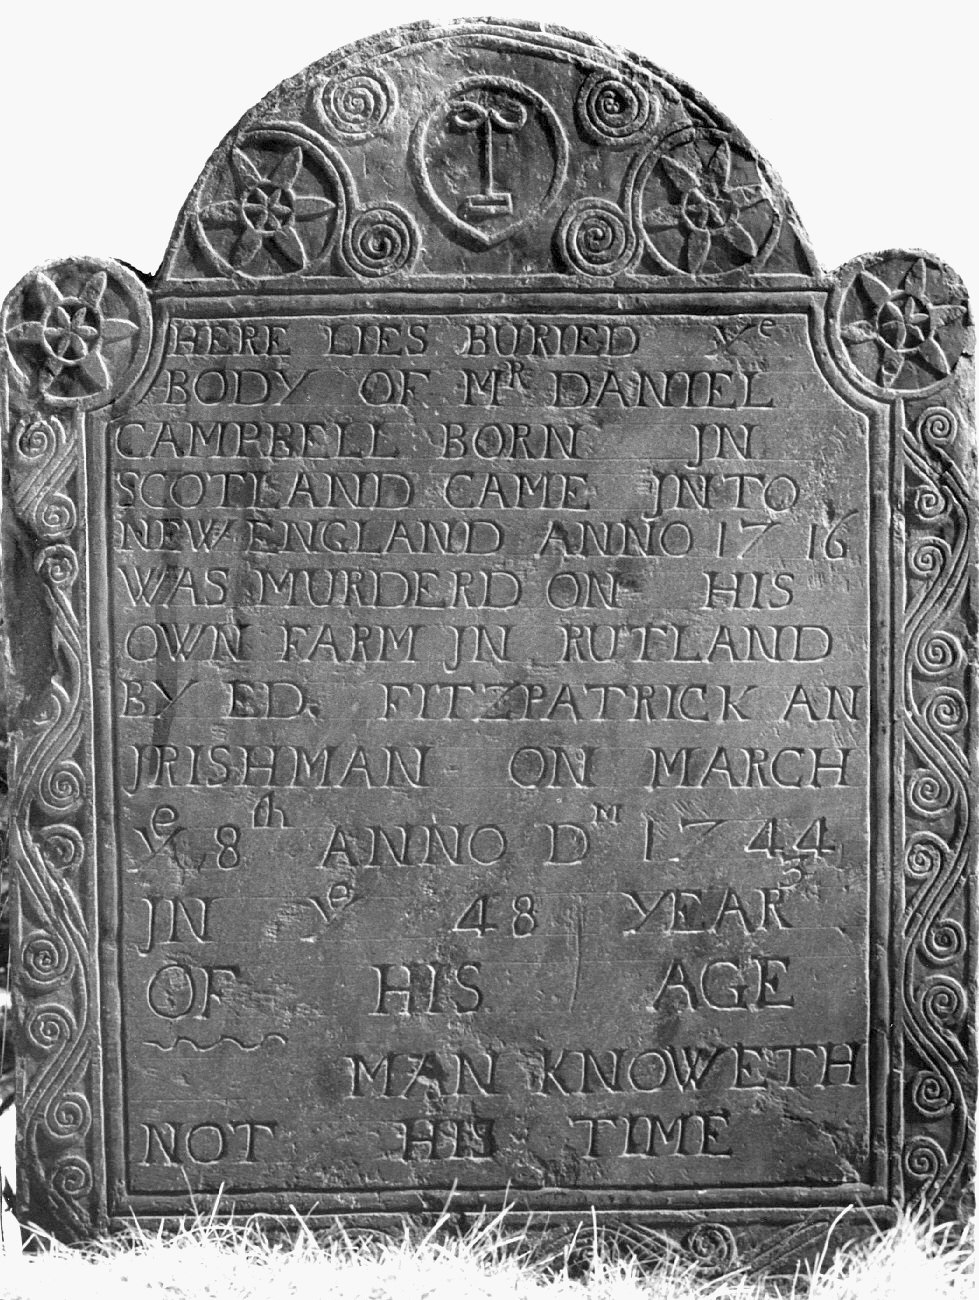 HERE LIES BURIED Ye
BODY OF Mr DANIEL
CAMPBELL BORN JN
SCOTLAND CAME JNTO
NEW ENGLAND ANNO 1716
WAS MURDERD ON HIS
OWN FARM JN RUTLAND
BY ED. FITZPATRICK AN
JRISHMAN ON MARCH
ye 8th ANNO DM 1744/3
JN ye 48 YEAR
OF HIS AGE
MAN KNOWETH
NOT HIS TIME